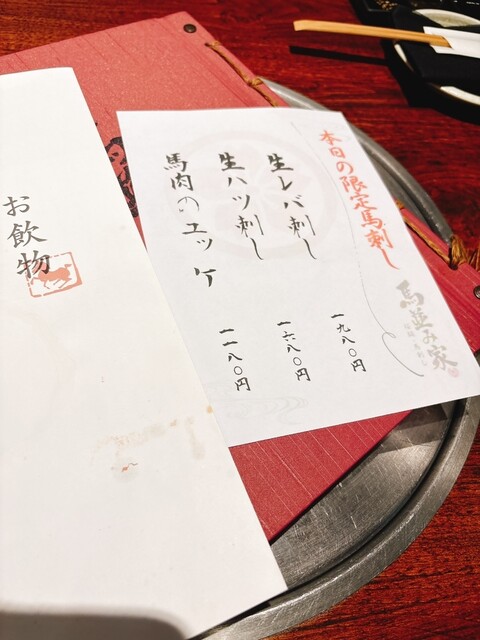 本日の限定馬刺し
生レバ刺し
一九八〇円
生ハツ刺し
一六八〇円
馬肉のユッケ
一一八〇円
馬並み家
お飲物